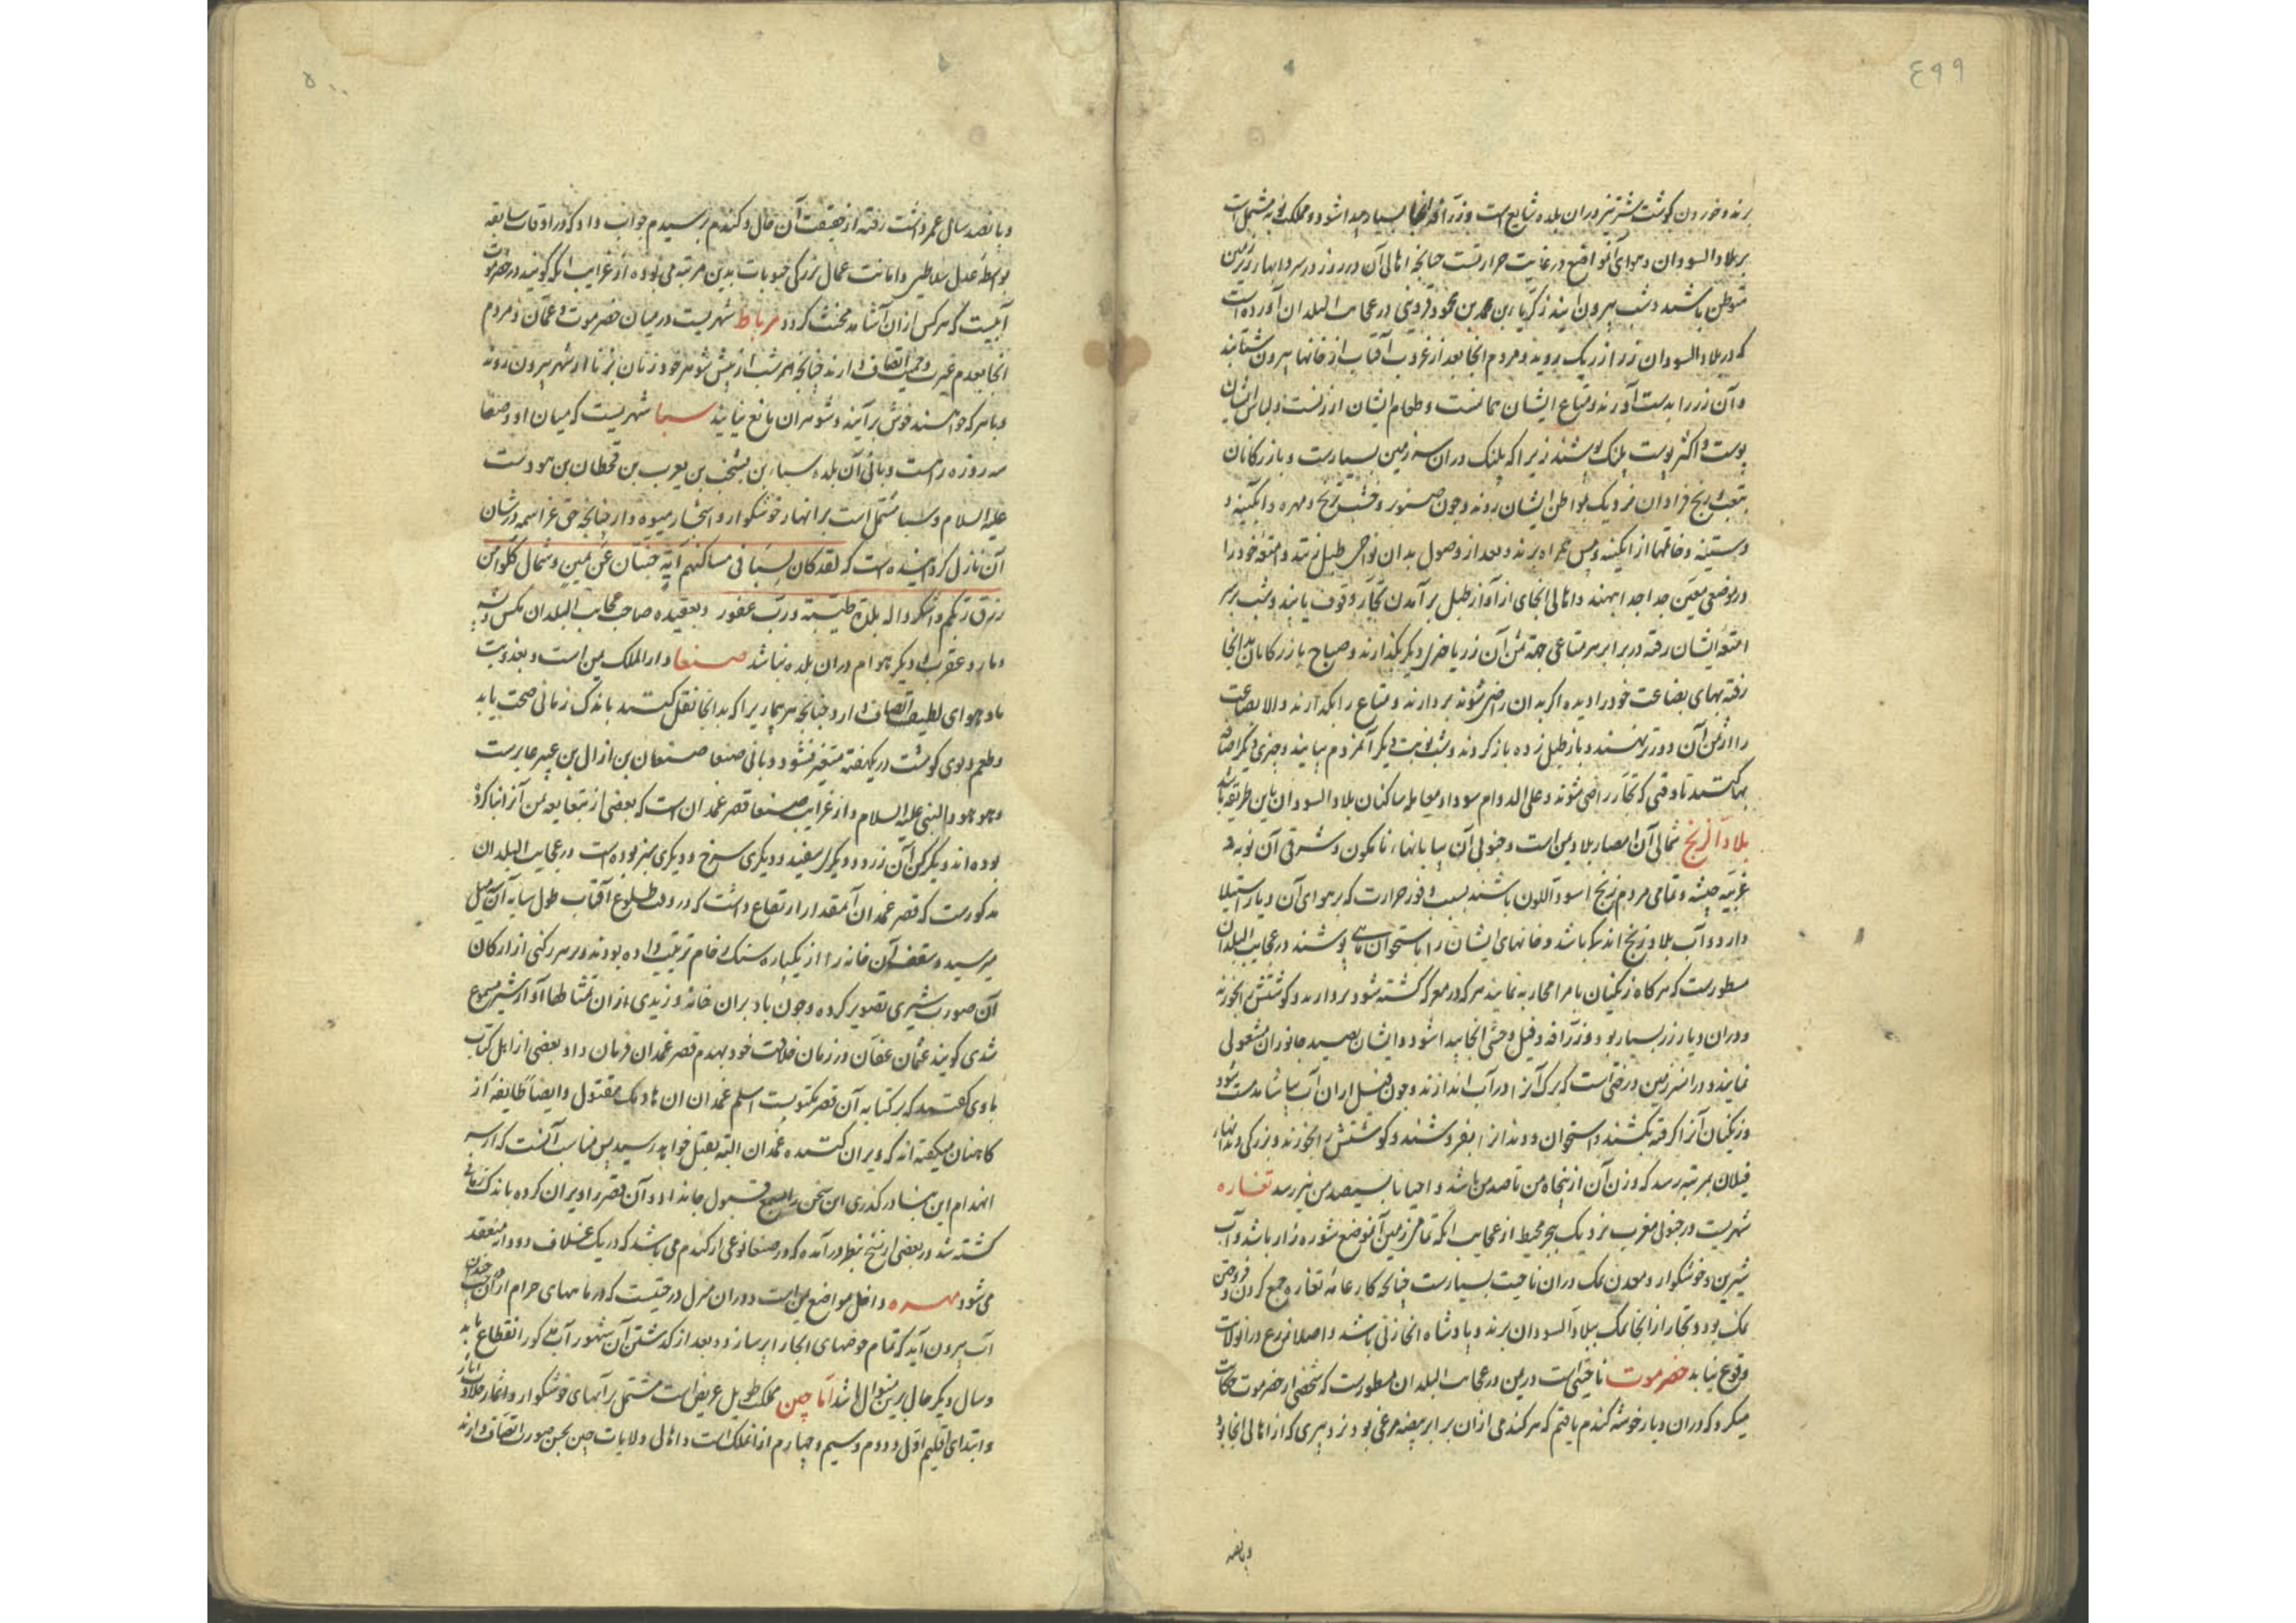 ٤٩٩
برند و خوردن کوشت شتر نیز دران بلده شایع است و زرافه انجا بسیار پیدا شود و مملکت نوبه مشتمل است
بر بلاد السودان و هوای آنمواضع در غایت حرارتست چنانچه اهالی آن در روز در سردابها زیر زمین
متوطن باشند و شب بیرون ایند زکریا بن محمد بن محمود قزوینی در عجایب البلدان آورده است
که در بلاد السودان زر از ریک روید و مردم انجا بعد از غروب آفتاب از خانها بیرون شتابند
و آن زر را بدست آورند و متاع ایشان همانست و طعام ایشان ارزنست و لباس ایشان
پوست و اکثر پوست پلنک پوشند زیرا که پلنک دران سرزمین بسیارست و بازرکانان
بتعب و رنج فراوان نزدیک بمواطن ایشان روند و چون صنوبر و خشب زنج و مهره و ابکینه و
دستینه و خاتمها از ابکینه و مس همراه برند و بعد از وصول بدان نواحی طبل زنند و امتعه خود را
در موضعی معین جدا جدا بنهند و اهالی انجای از آواز طبل بر آمدن تجار وقوف یابند و شب بر سر
امتعه ایشان رفته در برابر هر متاعی جهة ثمن آن زر یا چیزی دیکر بکذارند و صباح بازرکانان بدانجا
رفته بهای بضاعت خود را دیده اکر بدان راضی شوند بردارند و متاع را بکذارند و الا بضاعت
را از ثمن آن دورتر نهند و باز طبل زده باز کردند و شب نوبت دیکر آنمردم بیایند و چیزی دیکر اضافه
بها کنند تا وقتی که تجار راضی شوند و علی الدوام سودا و معامله ساکنان بلاد السودان باین طریقه باشد
بلاد الزنج شمالی آن امصار بلاد یمن است و جنوبی آن بیابانها، نامکون و شرقی آن نوبه و
غربیه حبشه و تمامی مردم زنج اسود اللون باشند بسبب وفور حرارت که بر هوای آن دیار استیلا
دارد و آب بلاد زنج اندک باشد و خانهای ایشان را باستخوان ماهی پوشند در عجایب البلدان
مسطورست که هر کاه زنکیان با هم محاربه نمایند هر که در معرکه کشته شود بردارند و کوشتش را بخورند
و دران دیار زر بسیار بود و زرافه و فیل وحشی انجا پیدا شود و ایشان بصید جانوران مشغولی
نمایند و در آنسرزمین درختی است که برک آنرا در آب اندازند و چون فیل ازان آب بیاشامد مست شود
و زنکیان آنرا کرفته بکشند و استخوان و دندانرا بفروشند و کوشتش را بخورند و بزرکی دندانهاء
فیلان بمرتبه رسد که وزن آن از پنجاه من تا صد من باشد و احیانا بسیصد من نیز رسد تغاره
شهریست در جنوبی مغرب نزدیک ببحر محیط از عجایب انکه تمامی زمین آنموضع شوره زار باشد و آب
شیرین و خوشکوار و معدن نمک دران ناحیت بسیارست چنانچه کار عامه تغاره جمع کردن و فروختن
نمک بود و تجار از انجا نمک ببلاد السودان برند و پادشاه انجا زنی باشد و اصلا زرع در انولایت
وقوع نیابد حضرموت ناحیتی است در یمن در عجایب البلدان مسطورست که شخصی از حضرموت حکایت
میکرد که دران دیار خوشه کندم یافتیم که هر کندمی ازان برابر بیضه مرغی بود نزد پیری که از اهالی انجا بود
و پانصد
٥٠٠
و پانصد سال عمر داشت رفته از حقیقت آن حال و کندم پرسیدم جواب داد که در اوقات سابقه
بواسطه عدل سلاطین و امانت عمال بزرکی حبوبات بدین مرتبه می بوده از غرایب انکه کویند در حضرموت
آبیست که هر کس ازان آشامد مخنث کردد مرباط شهریست در میان حضرموت و عمان و مردم
انجا بعدم غیرت و حمیت اتصاف دارند چنانچه هر شب از پیش شوهر خود زنان بزنا از شهر بیرون روند
و با هر که خواهند خوش برآیند و شوهران مانع نیایند سبا شهریست که میان او و صنعا
سه روزه راهست و بانی آن بلده سباء بن یشخب بن یعرب بن قحطان بن هود است
علیه السلام و سبا مشتمل است بر انهار خوشکوار و اشجار میوه دار چنانچه حق عز اسمه در شان
آن نازل کردانیده است که لقد کان لسبا فی مساکنهم آیة جنتان عن یمین و شمال کلوا من
رزق ربکم و اشکروا له بلدة طیبة و رب غفور و بعقیده صاحب عجایب البلدان مکس و پشه
و مار و عقرب و دیکر هوام دران بلده نباشد صنعا دار الملک یمن است و بعذوبت
ماء و هوای لطیف اتصاف دارد چنانچه هر بیماریرا که بدانجا نقل کنند باندک زمانی صحت یابد
و طعم و بوی کوشت در یکهفته متغیر نشود و بانی صنعا صنعان بن ازال بن عیبر عابرست
و هو هود النبی علیه السلام و از غرایب صنعا قصر غمدان است که بعضی از تبابعه یمن آنرا بنا کرده
بوده اند و یک رکن آن زرد و دیکری سفید و دیکری سرخ و دیکری سبز بوده است در عجایب البلدان
مذکورست که قصر غمدان آنمقدار ارتفاع داشت که در وقت طلوع آفتاب طول سایه آن سه میل
میرسید و سقف آن خانه را از یکپاره سنک رخام ترتیب داده بودند و بر هر رکنی از ارکان
آن صورت شیری تصویر کرده و چون باد بران خانه وزیدی ازان تمثالها آواز شیر مسموع
شدی کویند عثمان عفان در زمان خلافت خود بهدم قصر غمدان فرمان داد بعضی از اهل کتاب
با وی کفتند که بر کتابه آن قصر مکتوبست اسلم غمدان ان هادمک مقتول و ایضا طایفه از
کاهنان میکفته اند که ویران کننده غمدان البته بقتل خواهد رسید پس مناسب آنست که از سر
انهدام این بنا در کذری این سخن را بسمع قبول جا نداد و آن قصر را ویران کرده باندک زمانی
کشته شد در بعضی از نسخ بنظر در آمده که در صنعا نوعی از کندم می باشد که در یک غلاف دو دانه منعقد
می شود مهره داخل مواضع یمن است و دران منزل درختیست که در ماههای حرام ازان چندان
آب بیرون آید که تمام حوضهای انجا را پر سازد و بعد از کذشتن آن شهور آب مذکور انقطاع یابد
و سال دیکر حال برین منوال باشد اما چین مملکت طویل عریض است مشتمل بر آبهای خوشکوار و اثمار حلاوت آثار
و ابتدای اقلیم اول و دوم و سیم و چهارم از انملکت است و اهالی ولایات چین بحسن صورت اتصاف دارند